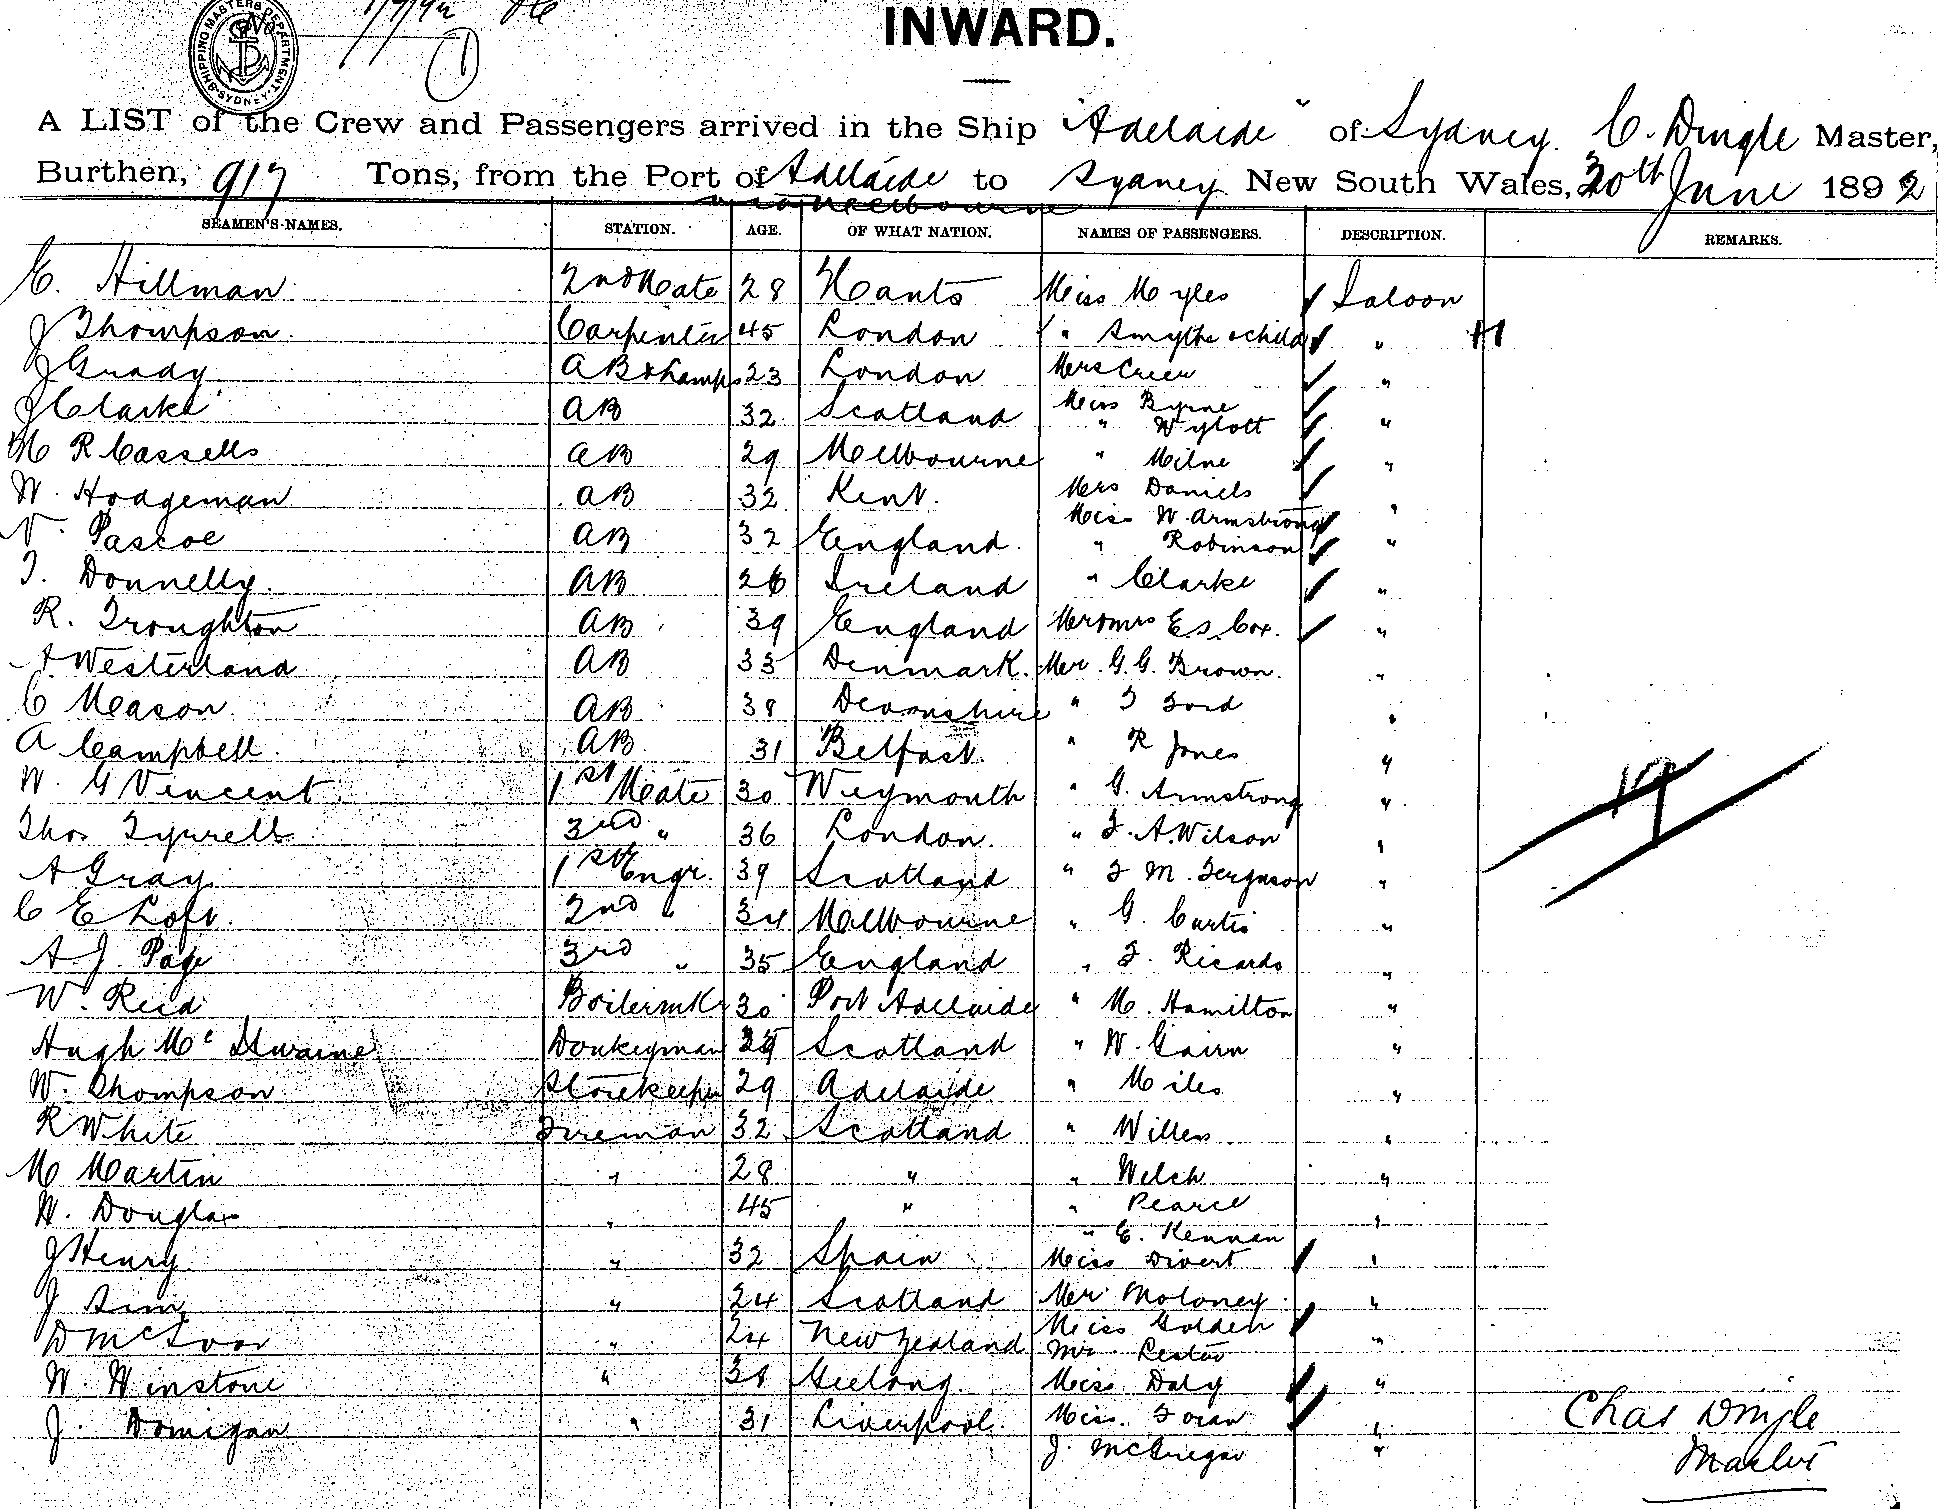 SHIPPING MASTERS DEPARTMENT SYDNEY
INWARD.
A LIST of the Crew and Passengers arrived in the Ship "Adelaide" of Sydney. C. Dingle Master,
Burthen, 917 Tons, from the Port of Adelaide to Sydney New South Wales, 30th June 1892
via Melbourne
SEAMEN'S NAMES. STATION. AGE. OF WHAT NATION. NAMES OF PASSENGERS. DESCRIPTION. REMARKS.
E. Hillman 2nd Mate 28 Hants Miss Myles Saloon
J Thompson Carpenter 45 London " Smythe & child "
J Grady AB & Lamps 23 London Mrs Creer "
J Clarke AB 32 Scotland Miss Byrne
" Wylott "
M R Cassells AB 29 Melbourne " Milne "
W. Hodgeman AB 32 Kent. Mrs Daniels "
Miss W. Armstrong
Pascoe AB 32 England " Robinson "
T. Donnelly AB 26 Ireland " Clarke "
R. Troughton AB 39 England Mr & Mrs E S Cox. "
A Westerland AB 33 Denmark. Mr. G. G. Brown. "
C Meason AB 38 Devonshire " T Ford "
A Campbell AB 31 Belfast. " R Jones "
W. G Vincent 1st Mate 30 Weymouth " G. Armstrong "
Thos Tyrrell 3rd " 36 London. " F. A. Wilson "
A Gray 1st Engr. 39 Scotland " F M. Ferguson "
C E Loft. 2nd " 34 Melbourne " G. Curtis "
A. J. Page 3rd " 35 England " F. Ricards "
W. Reid Boilermkr 30 Port Adelaide " M. Hamilton "
Hugh Mc Donkeyman Scotland " W. Gairn "
W. Thompson Storekeeper 29 Adelaide " Miles "
R White Fireman 32 Scotland " Willes "
M Martin " 28 " " Welch "
W. Douglas " 45 " " Pearce "
" E. Kennan
J Henry " 32 Spain Miss Divert "
J Sim " 24 Scotland Mr Moloney "
D McIvor " 24 New Zealand Miss Golden
Mr. Lester "
W. Winstone " 38 Geelong. Miss Daly "
J. Domigan " 31 Liverpool. Miss. Foran "
J. McGregor "
Chas Dingle
Master